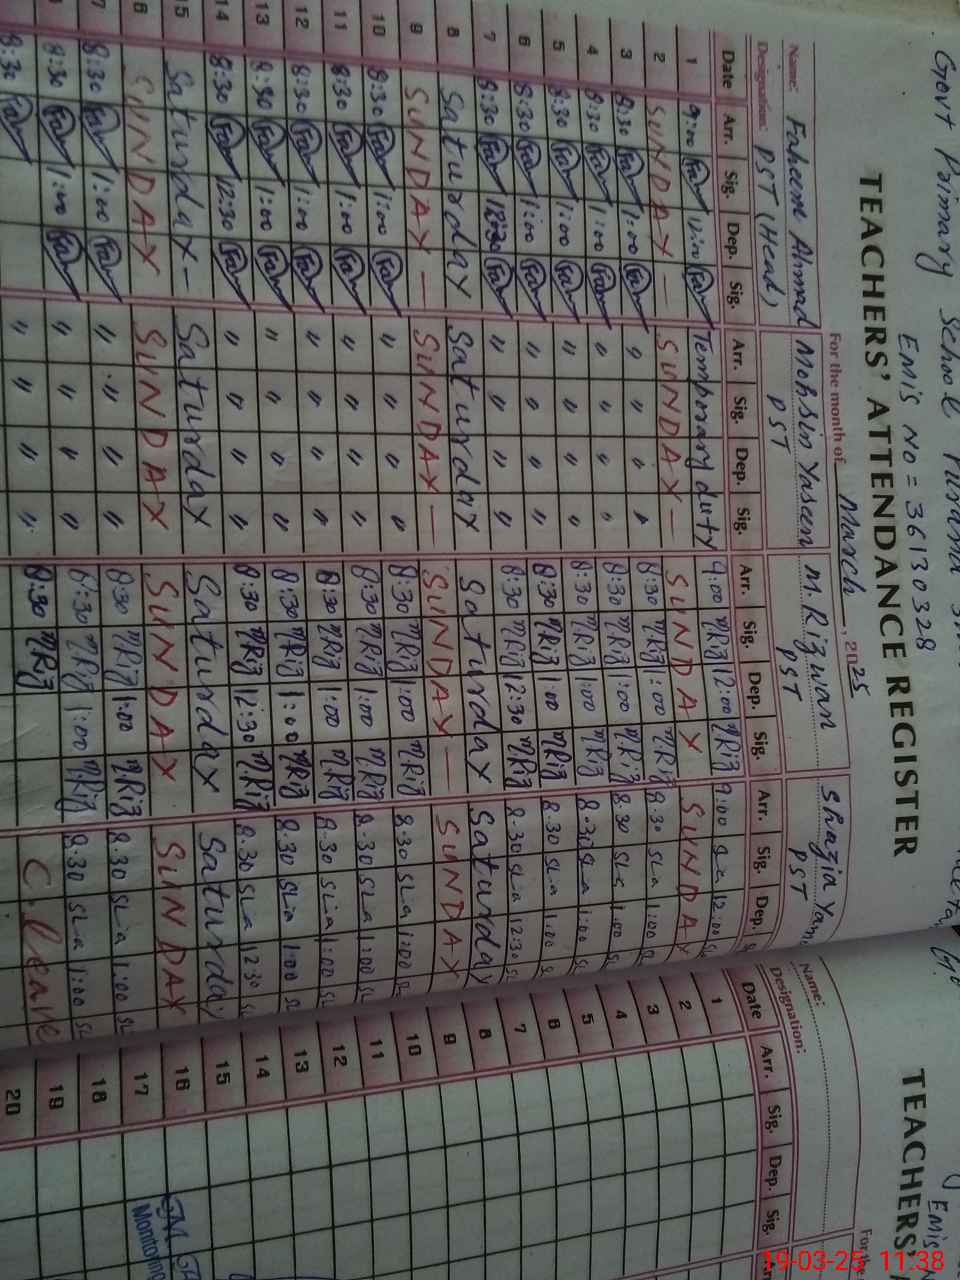 Govt Primary School
EMIS No = 36130328
TEACHERS' ATTENDANCE REGISTER
For the month of March, 2025
Name: Faheem Ahmad Mohsin Yaseen M. Rizwan Shazia
Designation: PST (Head) PST PST PST
Date Arr. Sig. Dep. Sig. Arr. Sig. Dep. Sig. Arr. Sig. Dep. Sig. Arr. Sig. Dep.
1 9:00 Fah 12:00 Fah Temporary duty 9:00 M.Riz 12:00 M.Riz 9:00 Sla 12:00
2 SUNDAY — SUNDAY — SUNDAY SUNDAY
3 8:30 Fah 1:00 Fah " " " " 8:30 M.Riz 1:00 M.Riz 8:30 Sla 1:00
4 8:30 Fah 1:00 Fah " " " " 8:30 M.Riz 1:00 M.Riz 8.30 Sla 1.00
5 8:30 Fah 1:00 Fah " " " " 8:30 M.Riz 1:00 M.Riz 8.30 Sla 1:00
6 8:30 Fah 1:00 Fah " " " " 8:30 M.Riz 1:00 M.Riz 8.30 Sla 1.00
7 8:30 Fah 12:30 Fah " " " " 8:30 M.Riz 12:30 M.Riz 8.30 Sla 12:30
8 Saturday Saturday Saturday Saturday
9 SUNDAY — SUNDAY — SUNDAY — SUNDAY
10 8:30 Fah 1:00 Fah " " " " 8:30 M.Riz 1:00 M.Riz 8.30 Sla 1:00
11 8:30 Fah 1:00 Fah " " " " 8:30 M.Riz 1:00 M.Riz 8.30 Sla 1:00
12 8:30 Fah 1:00 Fah " " " " 8:30 M.Riz 1:00 M.Riz 8.30 Sla 1:00
13 8:30 Fah 1:00 Fah " " " " 8:30 M.Riz 1:00 M.Riz 8.30 Sla 1:00
14 8:30 Fah 12:30 Fah " " " " 8:30 M.Riz 12:30 M.Riz 8.30 Sla 12:30
15 Saturday — Saturday Saturday Saturday
SUNDAY SUNDAY SUNDAY SUNDAY
8:30 Fah 1:00 Fah " " " " 8:30 M.Riz 1:00 M.Riz 8.30 Sla 1:00
8:30 Fah 1:00 Fah " " " " 8:30 M.Riz 1:00 M.Riz 8:30 Sla 1:00
8:30 Fah " " " " 8:30 M.Riz C. leave
EMIS
TEACHERS'
For the
Name:
Designation:
Date Arr. Sig. Dep. Sig.
1
2
3
4
5
6
7
8
9
10
11
12
13
14
15
16
17
18
19
20
Monitoring
19-03-25 11:38